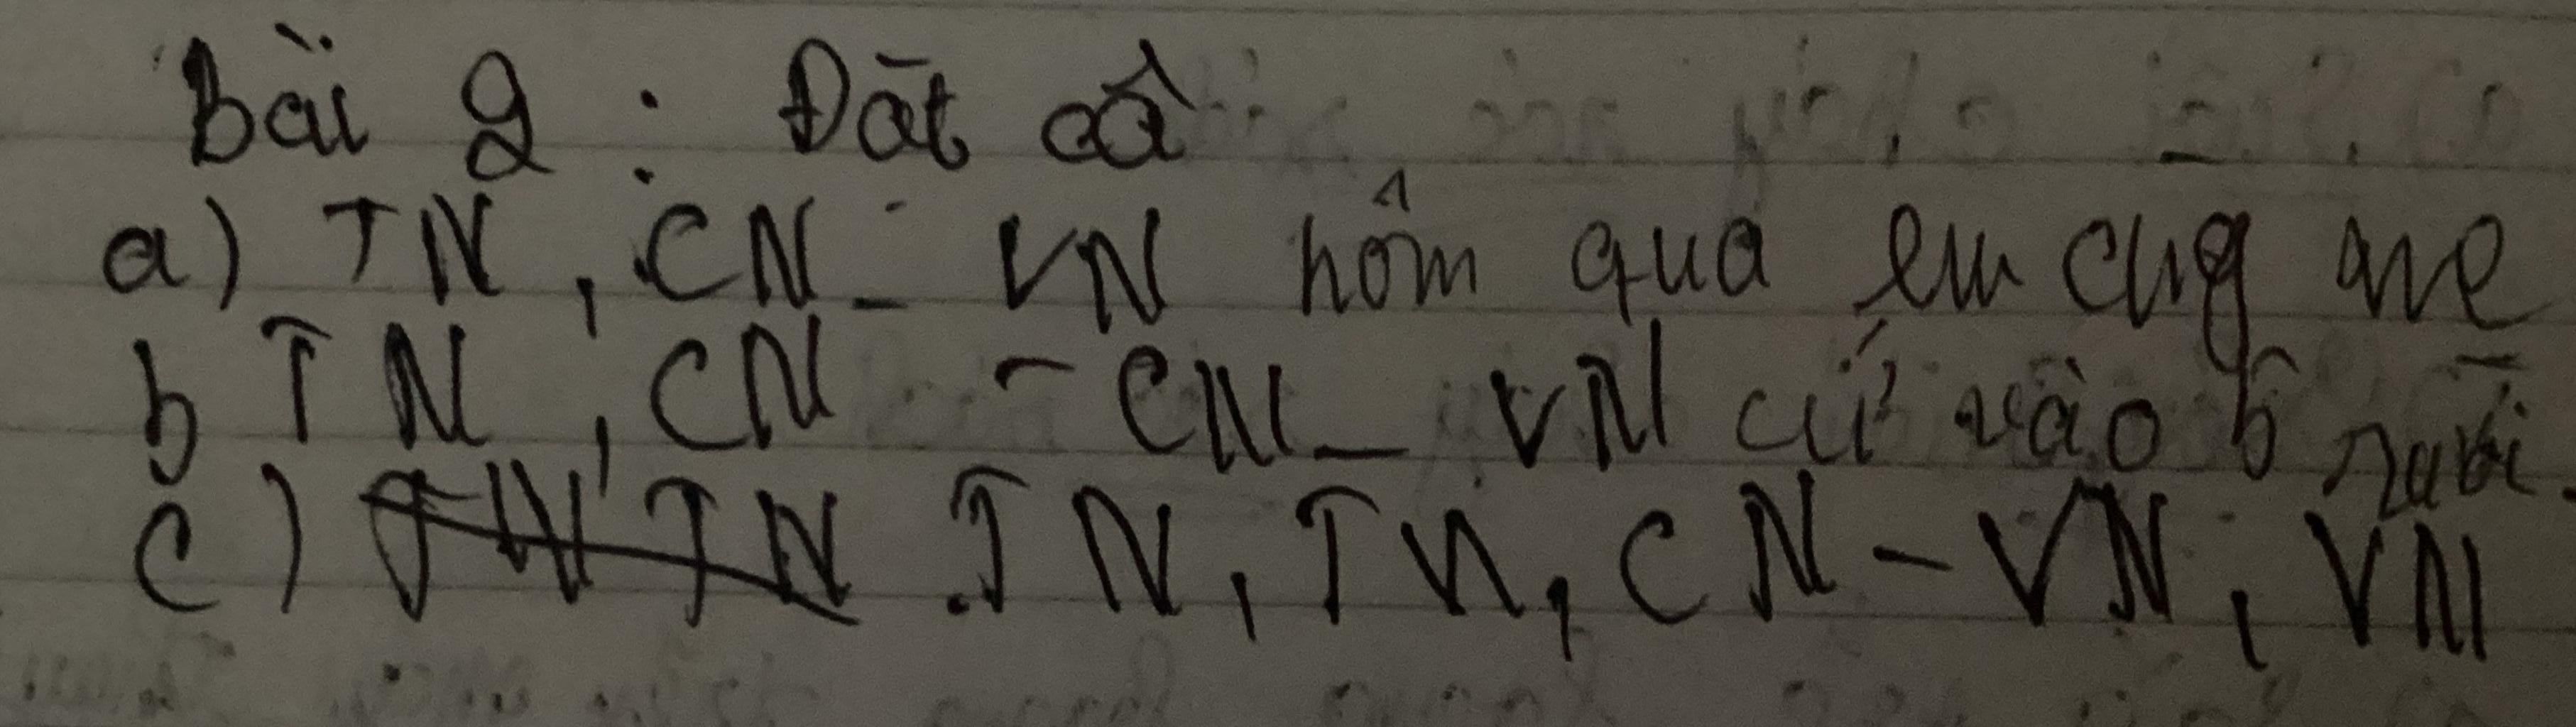 Bài 2 : Đặt câ
a) TN, CN - VN hôm qua em cùng mẹ
b TN, CN - CN - VN cứ vào
c) TN, TN, CN - VN, VN